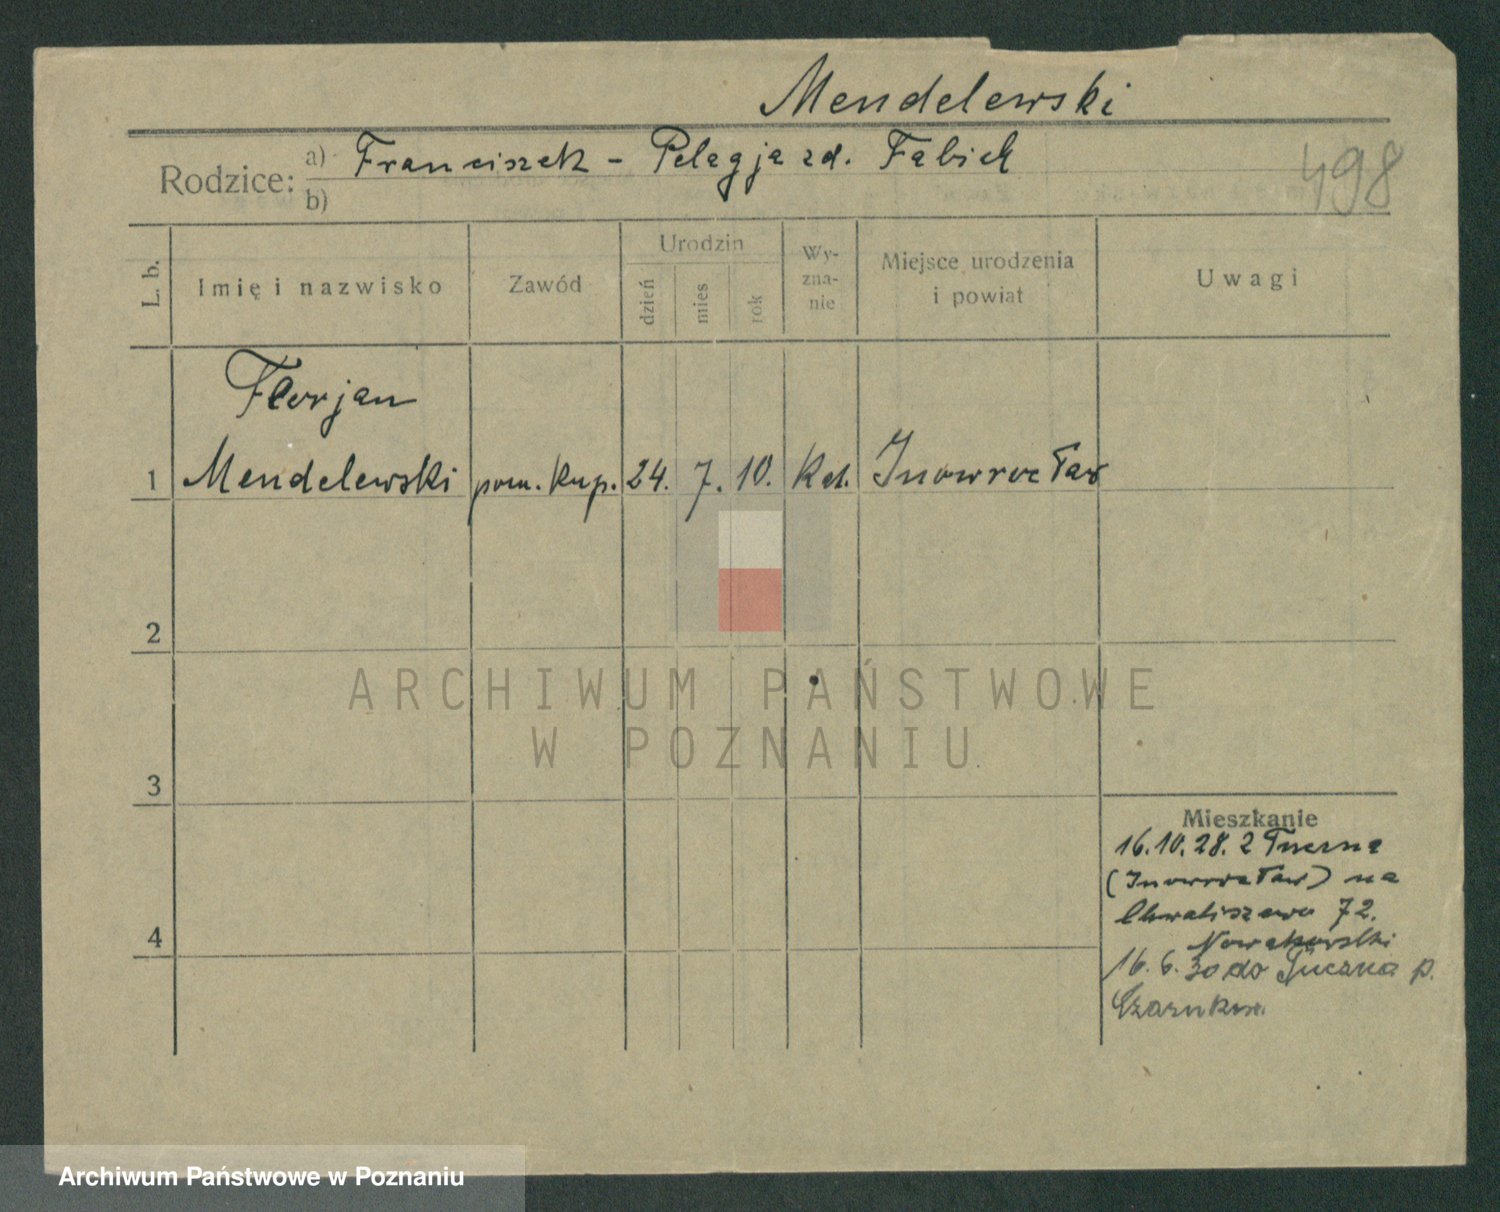 Mendelewski
Rodzice: a) Franciszek - Pelagja zd. Fabich
b)
498
L. b.
Imię i nazwisko
Zawód
Urodzin
dzień
mies
rok
Wy-
zna-
nie
Miejsce urodzenia
i powiat
Uwagi
Florjan
1 Mendelewski pom. kup. 24. 7. 10. Kat. Inowrocław
2
ARCHIWUM PAŃSTWOWE
W POZNANIU
3
Mieszkanie
16.10.28. z
(Inowrocław) na
Chwaliszewo 72.
4
Nowakowski
16.6.30 do p.
Czarnków.
Archiwum Państwowe w Poznaniu